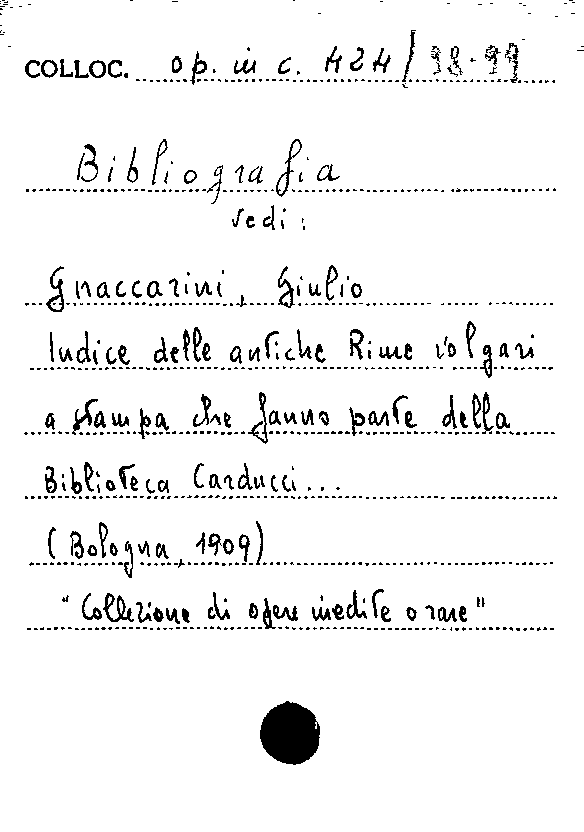 COLLOC. op. in c. 424/98-99
Bibliografia
vedi:
Gnaccarini, Giulio
Indice delle antiche Rime volgari
a stampa che fanno parte della
Biblioteca Carducci...
(Bologna, 1909)
"Collezione di opere inedite o rare"